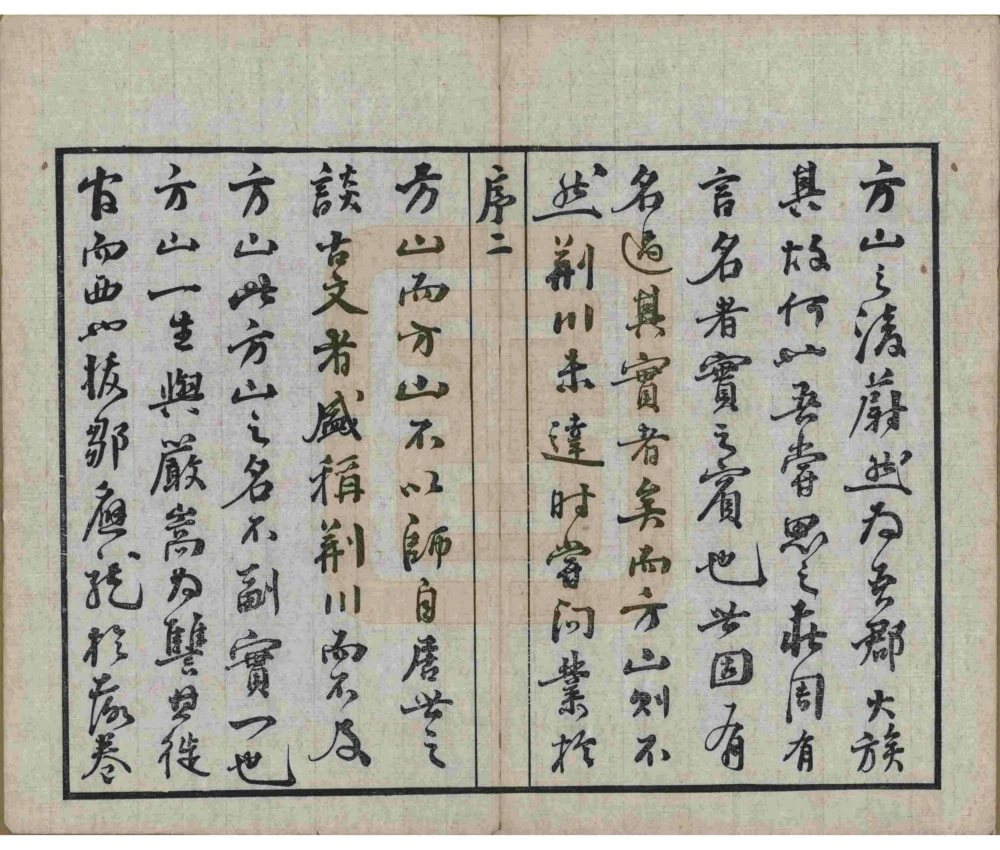 方山之後蔚然為吾郡大族
其故何也吾嘗思之莊周有
言名者實之賓也世固有
名過其實者矣而方山則不
然荊川未達時嘗問業於
序二
方山而方山不以師自居世之
談古文者盛稱荊川而不及
方山此方山之名不副實一也
方山一生與嚴嵩為讐其徙
官而西也拔鄒應龍於落卷